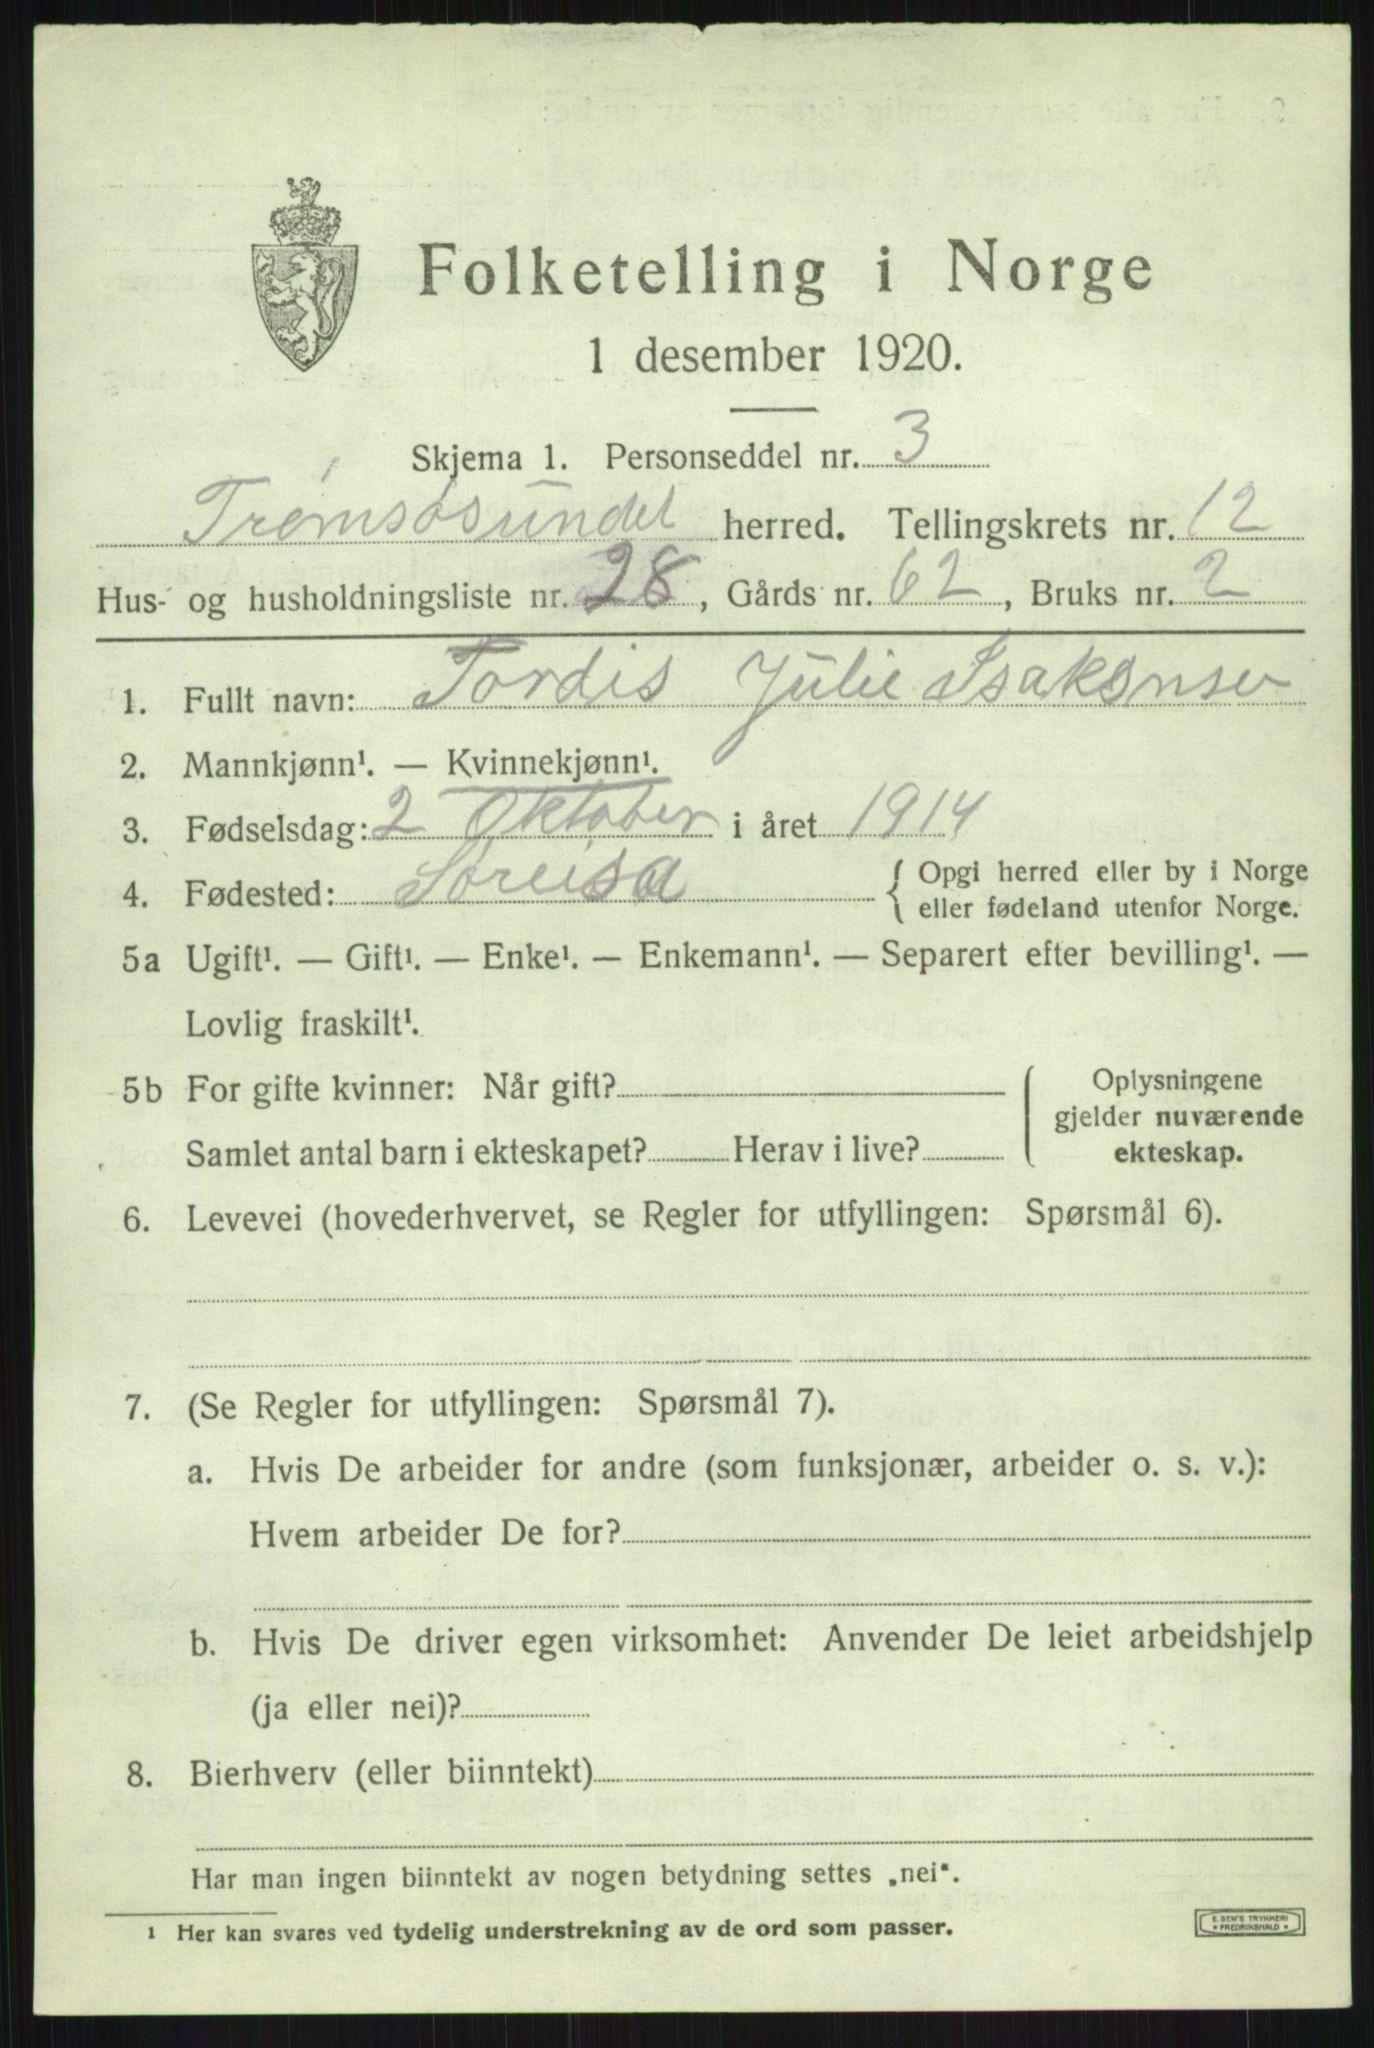 Folketelling i Norge
1 desember 1920.
Skjema 1. Personseddel nr. 3
Tromsøsundet herred. Tellingskrets nr. 12
Hus- og husholdningsliste nr. 28, Gårds nr. 62, Bruks nr. 2
1. Fullt navn: Tordis Julie Isaksnsen
2. Mannkjønn¹. — Kvinnekjønn¹.
3. Fødselsdag: 2 Oktober i året 1914
4. Fødested: Søreisa { Opgi herred eller by i Norge
eller fødeland utenfor Norge.
5a Ugift¹. — Gift¹. — Enke¹. — Enkemann¹. — Separert efter bevilling¹. —
Lovlig fraskilt¹.
5b For gifte kvinner: Når gift?
Samlet antal barn i ekteskapet? Herav i live?
Oplysningene
gjelder nuværende
ekteskap.
6. Levevei (hovederhvervet, se Regler for utfyllingen: Spørsmål 6).
7. (Se Regler for utfyllingen: Spørsmål 7).
a. Hvis De arbeider for andre (som funksjonær, arbeider o. s. v.):
Hvem arbeider De for?
b. Hvis De driver egen virksomhet: Anvender De leiet arbeidshjelp
(ja eller nei)?
8. Bierhverv (eller biinntekt)
Har man ingen biinntekt av nogen betydning settes „nei“.
¹ Her kan svares ved tydelig understrekning av de ord som passer.
E. SEM'S TRYKKERI
* FREDRIKSHALD *